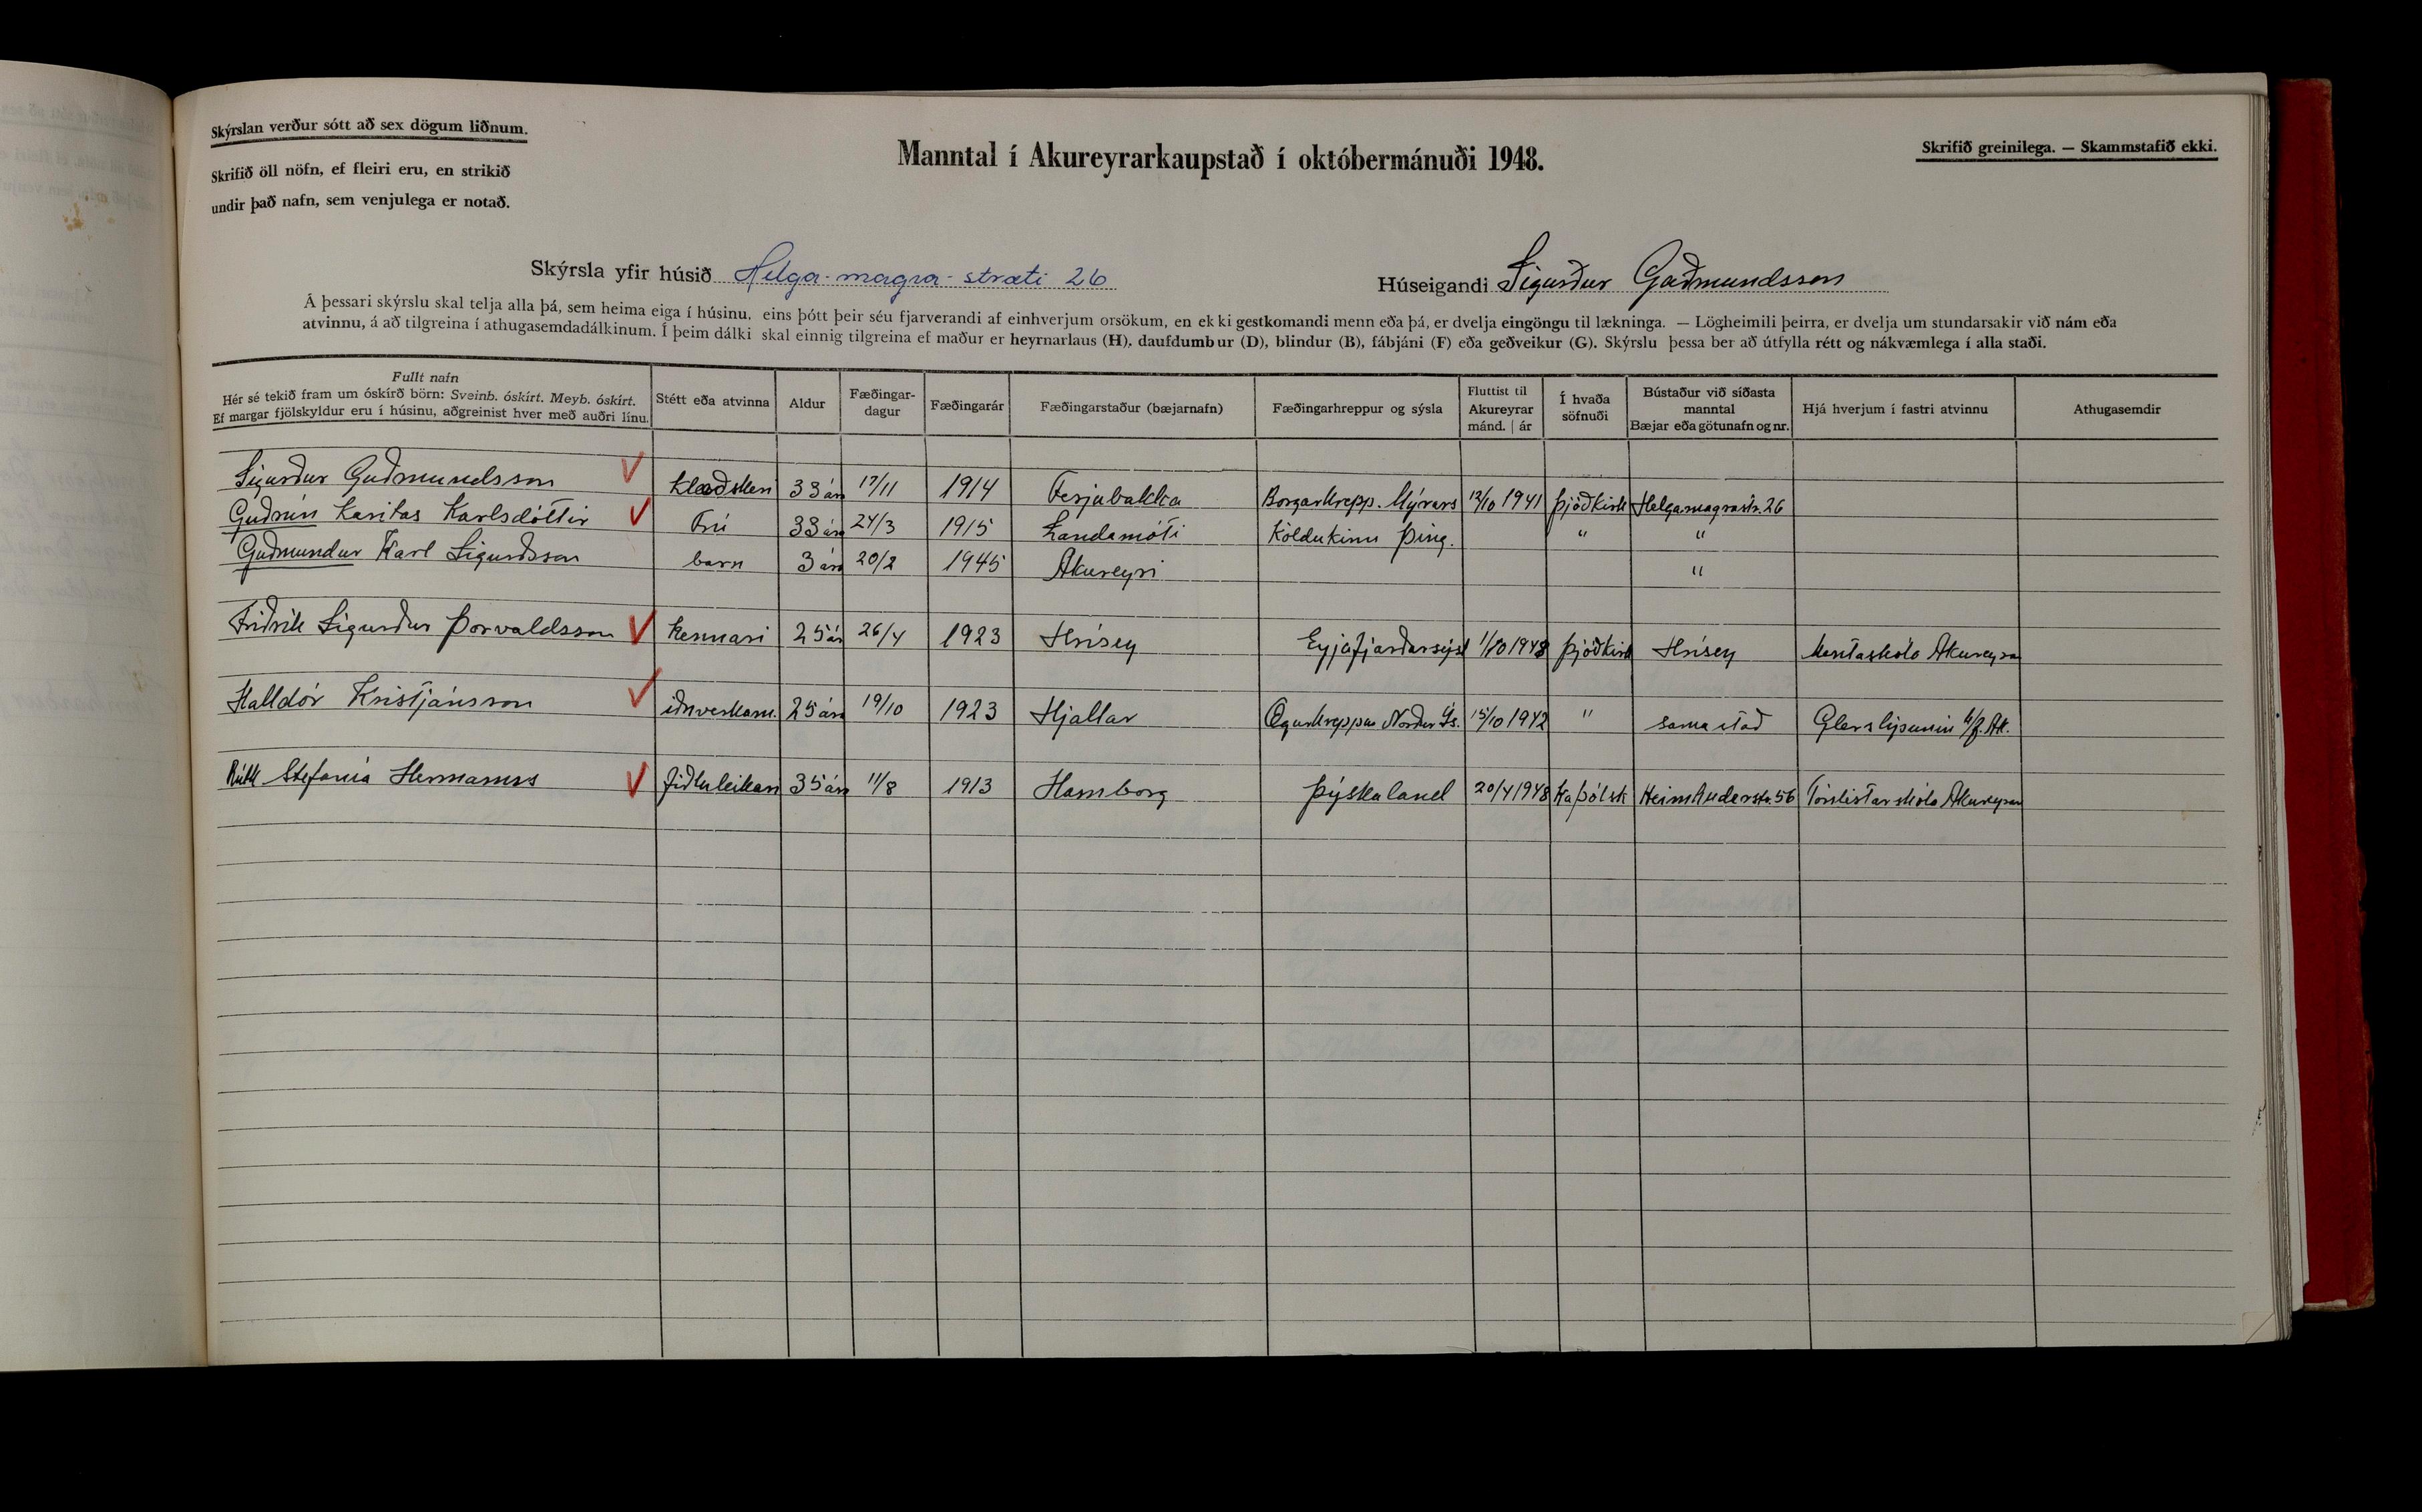 Skýrslan verður sótt að sex dögum liðnum.
Skrifið öll nöfn, ef fleiri eru, en strikið
undir það nafn, sem venjulega er notað.
Manntal í Akureyrarkaupstað í októbermánuði 1948.
Skrifið greinilega. — Skammstafið ekki.
Skýrsla yfir húsið Helga-magra-stræti 26
Húseigandi Sigurður Guðmundsson
Á þessari skýrslu skal telja alla þá, sem heima eiga í húsinu, eins þótt þeir séu fjarverandi af einhverjum orsökum, en ekki gestkomandi menn eða þá, er dvelja eingöngu til lækninga. — Lögheimili þeirra, er dvelja um stundarsakir við nám eða
atvinnu, á að tilgreina í athugasemdadálkinum. Í þeim dálki skal einnig tilgreina ef maður er heyrnarlaus (H), daufdumbur (D), blindur (B), fábjáni (F) eða geðveikur (G). Skýrslu þessa ber að útfylla rétt og nákvæmlega í alla staði.
Fullt nafn
Hér sé tekið fram um óskírð börn: Sveinb. óskírt. Meyb. óskírt.
Ef margar fjölskyldur eru í húsinu, aðgreinist hver með auðri línu.
Stétt eða atvinna
Aldur
Fæðingar-
dagur
Fæðingarár
Fæðingarstaður (bæjarnafn)
Fæðingarhreppur og sýsla
Fluttist til
Akureyrar
mánd. | ár
Í hvaða
söfnuði
Bústaður við síðasta
manntal
Bæjar eða götunafn og nr.
Hjá hverjum í fastri atvinnu
Athugasemdir
Sigurður Guðmundsson klæðskeri 33 ára 17/11 1914 Ferjubakka Borgarhrepp. Mýrars 12/10 1941 þjóðkirk Helgamagrastr. 26
Guðrún Karitas Karlsdóttir Frú 33 ára 24/3 1915 Landamóti Köldukinn Þing. " "
Guðmundur Karl Sigurðsson barn 3 ára 20/2 1945 Akureyri "
Friðrik Sigurður Þorvaldsson kennari 25 ár 26/4 1923 Hrísey Eyjafjarðarsýsl 1/10 1948 þjóðkirk Hrísey Mentaskóla Akureyrar
Halldór Kristjánsson iðnverkam. 25 ára 19/10 1923 Hjallar Ögurhreppur Norður Ís. 15/10 1942 " sama stað Glerslípunin h/f. Ak.
Rúth Stefanía Hermanns fiðluleikari 35 ára 11/8 1913 Hamborg Þýskaland 20/4 1948 Kaþólsk Tónlistarskóla Akureyrar